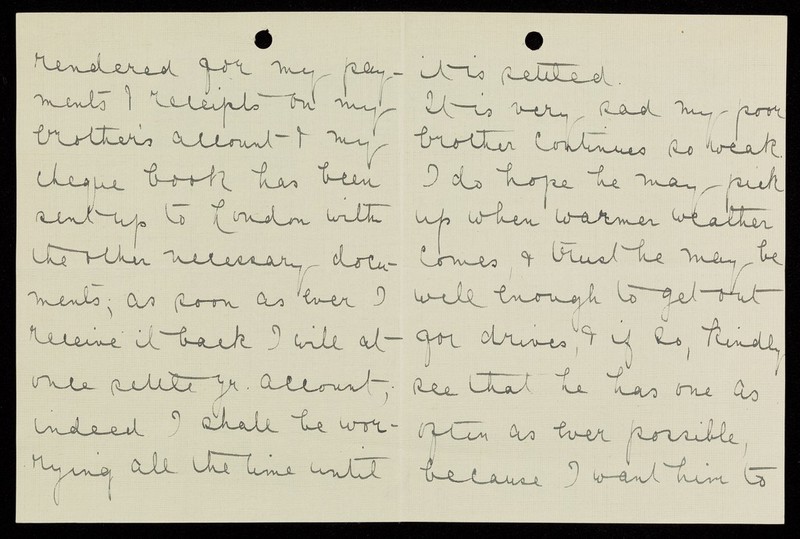 rendered for my pay-
ments & receipts on my
brother's account & my
cheque book has been
sent up to London with
the other necessary docu-
ments; as soon as ever I
receive it back I will at
once settle yr. account;
indeed I shall be wor-
rying all the time until
it is settled.
It is very sad my poor
brother continues so weak.
I do hope he may pick
up when warmer weather
comes, & trust he may be
well enough to get out
for drives, & if so, kindly
see that he has one as
often as ever possible,
because I want him to